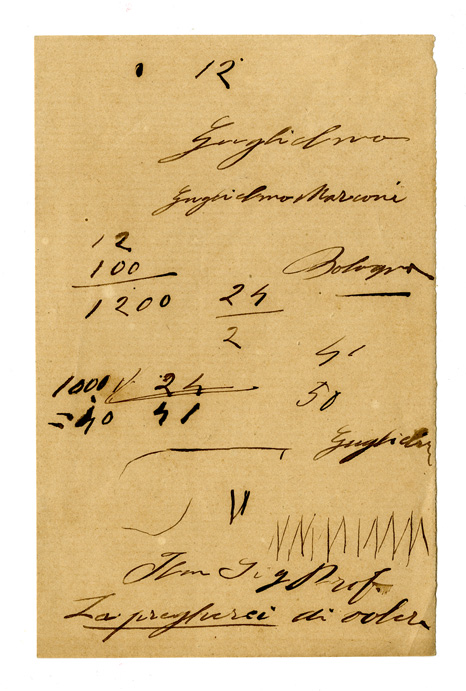 12
Guglielmo
Guglielmo Marconi
12
100
1200
Bologna
24
2
41
50
1000 24
40 41
Guglielm
Ilm Sig Prof.
La pregherei di voler